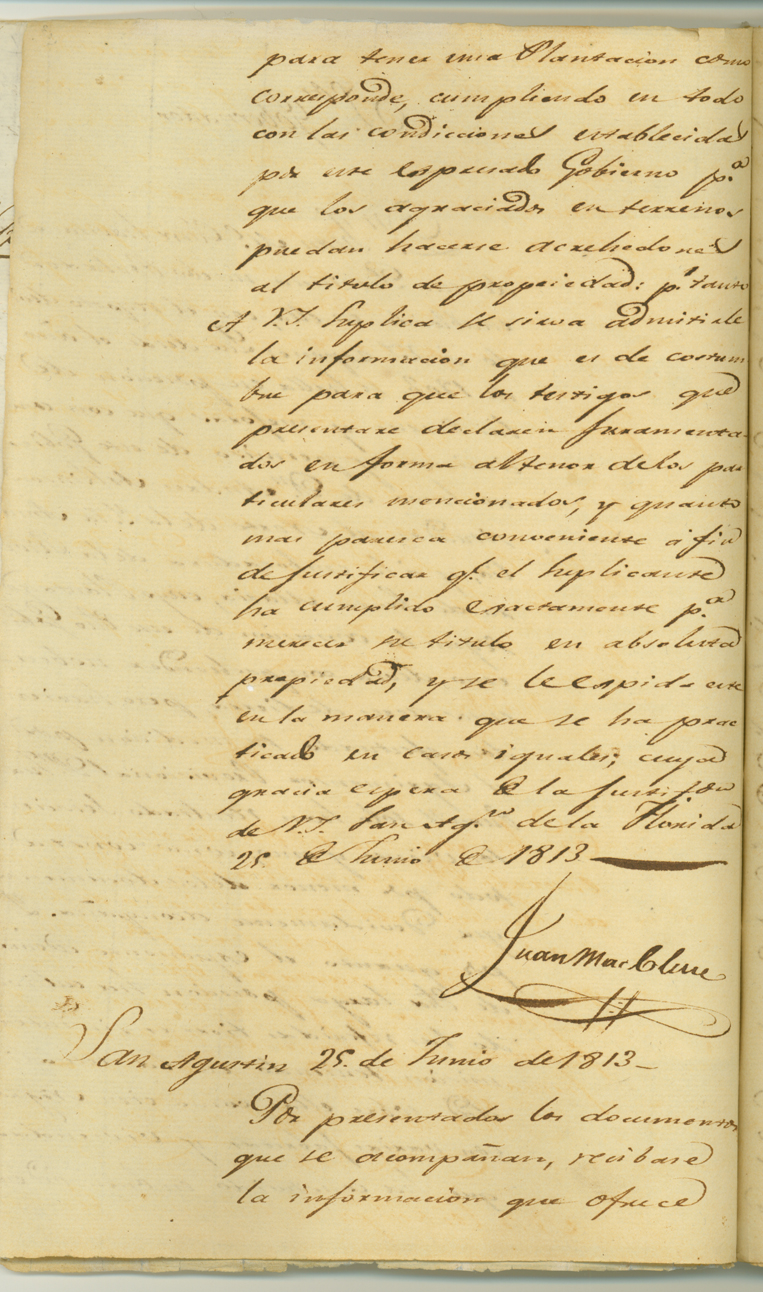 para tener una Plantacion como
corresponde, cumpliendo en todo
con las condicciones establecidas
por este expresado Gobierno p.ª
que los agraciados en terrenos
puedan hacerse acrehedores
al titulo de propiedad: p.r tanto
A V.S. Suplica se sirva admitirle
la informacion que es de costum
bre para que los testigos que
presentare declaren Juramenta-
dos en forma al tenor de los par
ticulares mencionados, y quanto
mas paresca conveniente á fin
de Justificar q.e el Suplicante
ha cumplido exactamente p.ª
merecer su titulo en absoluta
propiedad, y se le expida este
en la manera que se ha prac
ticado en casos iguales; cuya
gracia espera de la Justif.on
de V.S. San Ag.n de la Florida
25. de Junio de 1813
Juan MacClure
San Agustin 25. de Junio de 1813-
Por presentados los documentos
que se acompañan, recibase
la informacion que ofrece